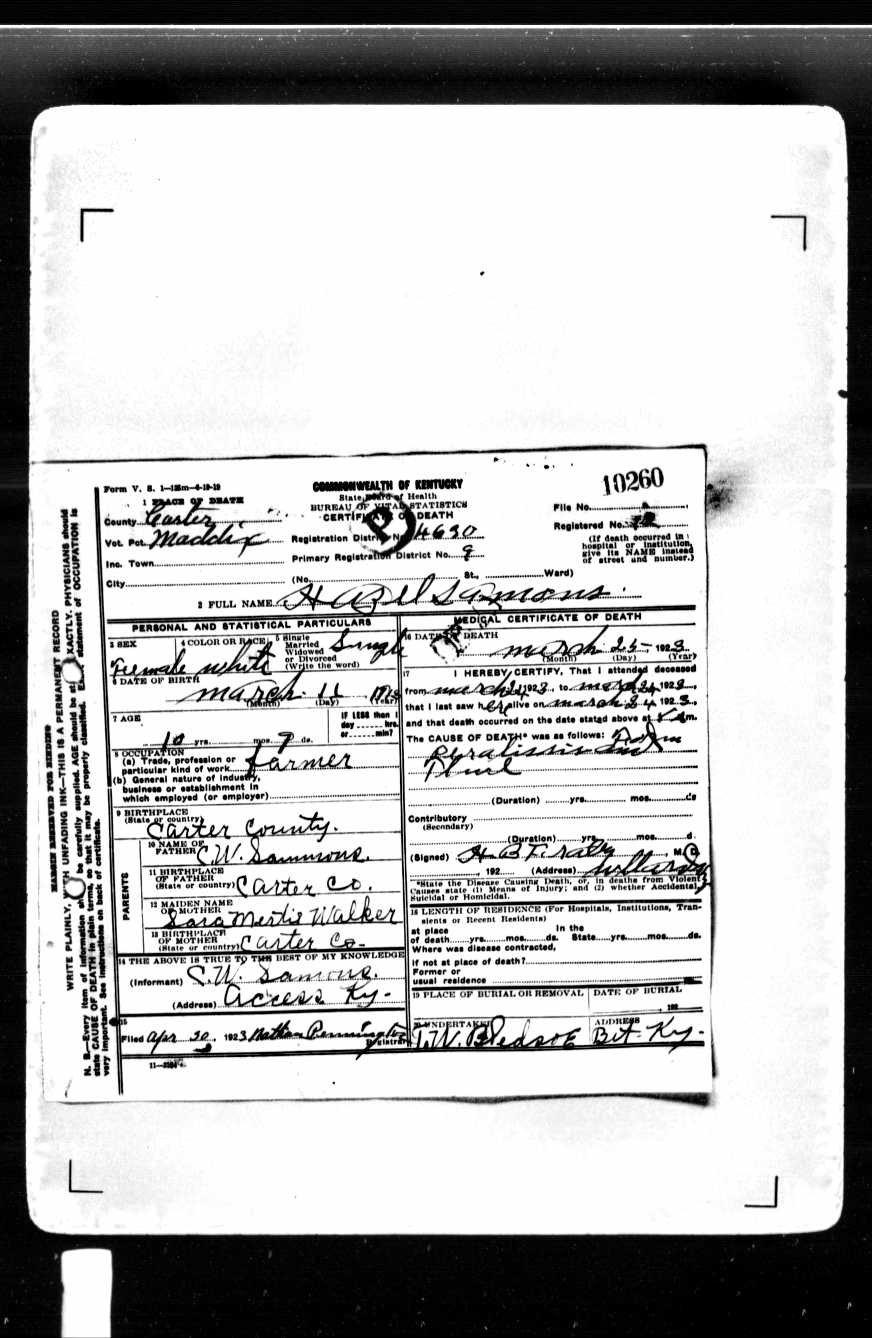 Form V. S. 1-125m-4-19-19
COMMONWEALTH OF KENTUCKY
State Board of Health
BUREAU OF VITAL STATISTICS
CERTIFICATE OF DEATH
10260
1 PLACE OF DEATH
County Carter
Vot. Pct. Maddix
Inc. Town
City
Registration District No. 4630
Primary Registration District No. 9
(No. St., Ward)
File No.
Registered No.
(If death occurred in hospital or institution, give its NAME instead of street and number.)
2 FULL NAME Hazel Samons.
PERSONAL AND STATISTICAL PARTICULARS
3 SEX Female
4 COLOR OR RACE white
5 Single Married Widowed or Divorced (Write the word) Single
6 DATE OF BIRTH
March 11
(Month) (Day) (Year)
7 AGE
10 yrs. mos. 7 ds.
IF LESS than 1 day hrs. or min?
8 OCCUPATION
(a) Trade, profession or particular kind of work farmer
(b) General nature of industry, business or establishment in which employed (or employer)
9 BIRTHPLACE
(State or country) Carter County.
PARENTS
10 NAME OF FATHER C.W. Sammons.
11 BIRTHPLACE OF FATHER (State or country) Carter Co.
12 MAIDEN NAME OF MOTHER Sara Mertie Walker
13 BIRTHPLACE OF MOTHER (State or country) Carter Co.
14 THE ABOVE IS TRUE TO THE BEST OF MY KNOWLEDGE
(Informant) C.W. Samons.
(Address) Access Ky.
15
Filed Apr 30, 1923 Nathan Pennington
Registrar
11-3184
MEDICAL CERTIFICATE OF DEATH
16 DATE OF DEATH
March 25 1923
(Month) (Day) (Year)
17 I HEREBY CERTIFY, That I attended deceased
from March 24 1923, to March 24 1923,
that I last saw her alive on March 24 1923,
and that death occurred on the date stated above at m.
The CAUSE OF DEATH* was as follows:
(Duration) yrs. mos. ds
Contributory
(Secondary)
(Duration) yrs. mos. d.
(Signed) H B M. D.
, 192 (Address) Willard
*State the Disease Causing Death, or, in deaths from Violent Causes state (1) Means of Injury; and (2) whether Accidental, Suicidal or Homicidal.
18 LENGTH OF RESIDENCE (For Hospitals, Institutions, Transients or Recent Residents)
at place of death yrs. mos. ds. In the State yrs. mos. ds.
Where was disease contracted,
if not at place of death?
Former or usual residence
19 PLACE OF BURIAL OR REMOVAL
DATE OF BURIAL
, 192
20 UNDERTAKER T.W. Bledsoe
ADDRESS Bet. Ky.
MARGIN RESERVED FOR BINDING
WRITE PLAINLY, WITH UNFADING INK—THIS IS A PERMANENT RECORD
N. B.—Every item of information should be carefully supplied. AGE should be stated EXACTLY. PHYSICIANS should
state CAUSE OF DEATH in plain terms, so that it may be properly classified. Exact statement of OCCUPATION is
very important. See instructions on back of certificate.